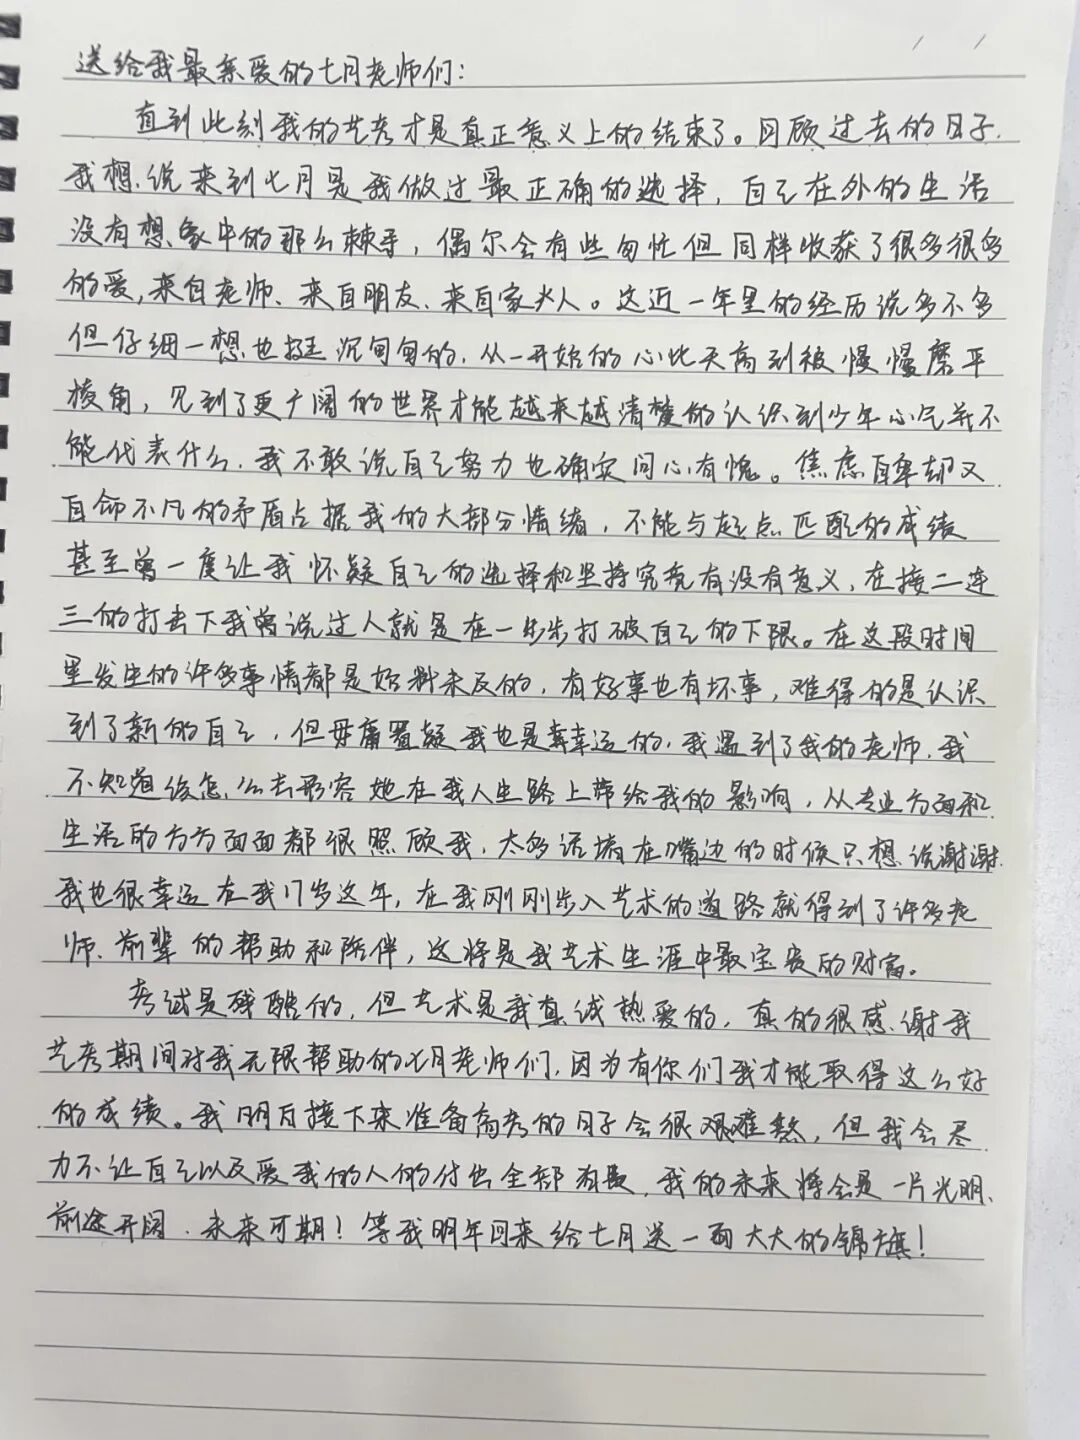 送给我最亲爱的七月老师们：
直到此刻我的艺考才是真正意义上的结束了。回顾过去的日子.
我想说来到七月是我做过最正确的选择，自己在外的生活
没有想象中的那么棘手，偶尔会有些匆忙但同样收获了很多很多
的爱，来自老师、来自朋友、来自家人。这近一年里的经历说多不多
但仔细一想也挺沉甸甸的，从一开始的心比天高到被慢慢磨平
棱角，见到了更广阔的世界才能越来越清楚的认识到少年心气并不
能代表什么，我不敢说自己努力也确实问心有愧。焦虑自卑却又
自命不凡的矛盾占据我的大部分情绪，不能与起点匹配的成绩
甚至曾一度让我怀疑自己的选择和坚持究竟有没有意义，在接二连
三的打击下我曾说过人就是在一步步打破自己的下限。在这段时间
里发生的许多事情都是始料未及的，有好事也有坏事，难得的是认识
到了新的自己，但毋庸置疑我也是幸运的，我遇到了我的老师，我
不知道该怎么去形容她在我人生路上带给我的影响，从专业方面和
生活的方方面面都很照顾我，太多话堵在嘴边的时候只想说谢谢.
我也很幸运在我17岁这年，在我刚刚步入艺术的道路就得到了许多老
师、前辈的帮助和陪伴，这将是我艺术生涯中最宝贵的财富。
考试是残酷的，但艺术是我真诚热爱的，真的很感谢我
艺考期间对我无限帮助的七月老师们，因为有你们我才能取得这么好
的成绩。我明白接下来准备高考的日子会很艰难熬，但我会尽
力不让自己以及爱我的人的付出全部有疑，我的未来将会是一片光明、
前途开阔、未来可期！等我明年回来给七月送一面大大的锦旗！